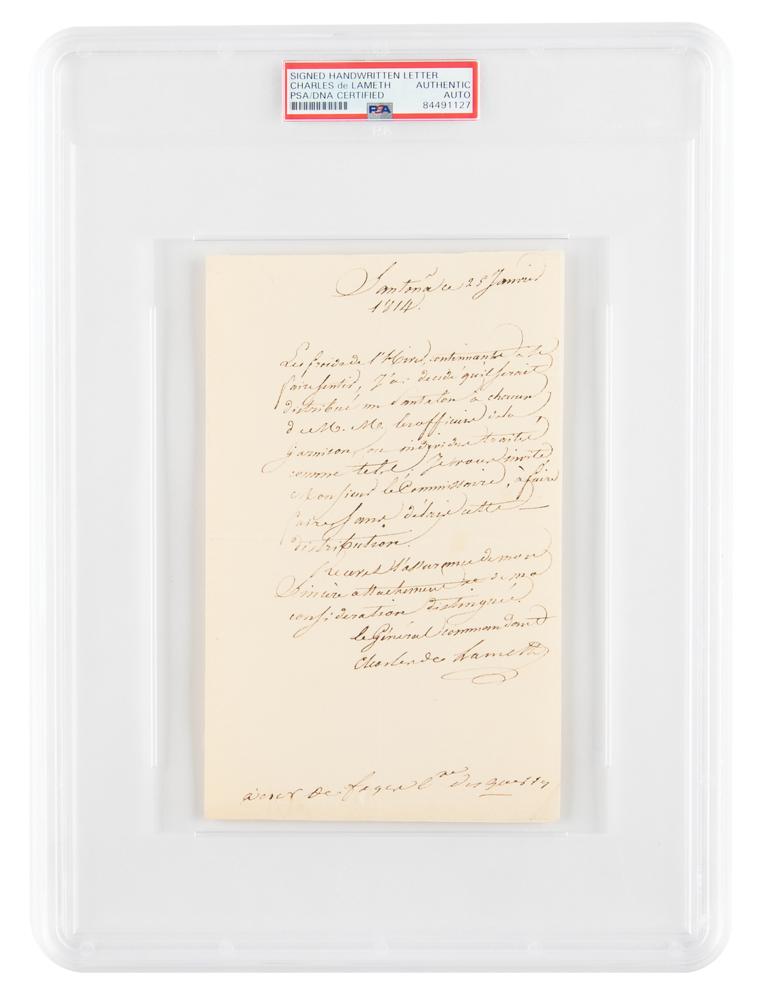 SIGNED HANDWRITTEN LETTER
CHARLES de LAMETH AUTHENTIC
PSA/DNA CERTIFIED AUTO
PSA 84491127
Santoña ce 25 Janvier
1814.
Les froids de l'hiver, continuant à se
faire sentir, J'ai decidé qu'il serait
distribué un Pantalon à chacun
de M. M. les officiers de la
garnison, ou individus traités
comme tels, Je vous invite
Monsieur le Commissaire, à faire
faire sans délai cette
distribution.
Recevez l'assurance de mon
Sincère attachement et de ma
considération distinguée.
le Général commandant
Charles de Lameth
à des